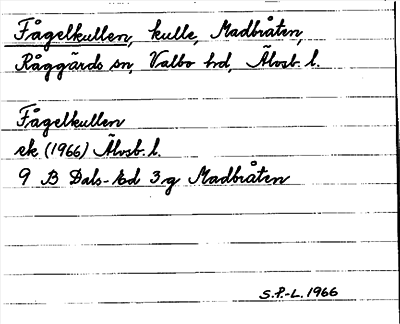 Fågelkullen, kulle, Madbråten,
Råggärds sn, Valbo hd, Älvsb. l.
Fågelkullen
ek (1966) Älvsb. l.
9 B Dals-Ed 3 g Madbråten
S.P.-L. 1966